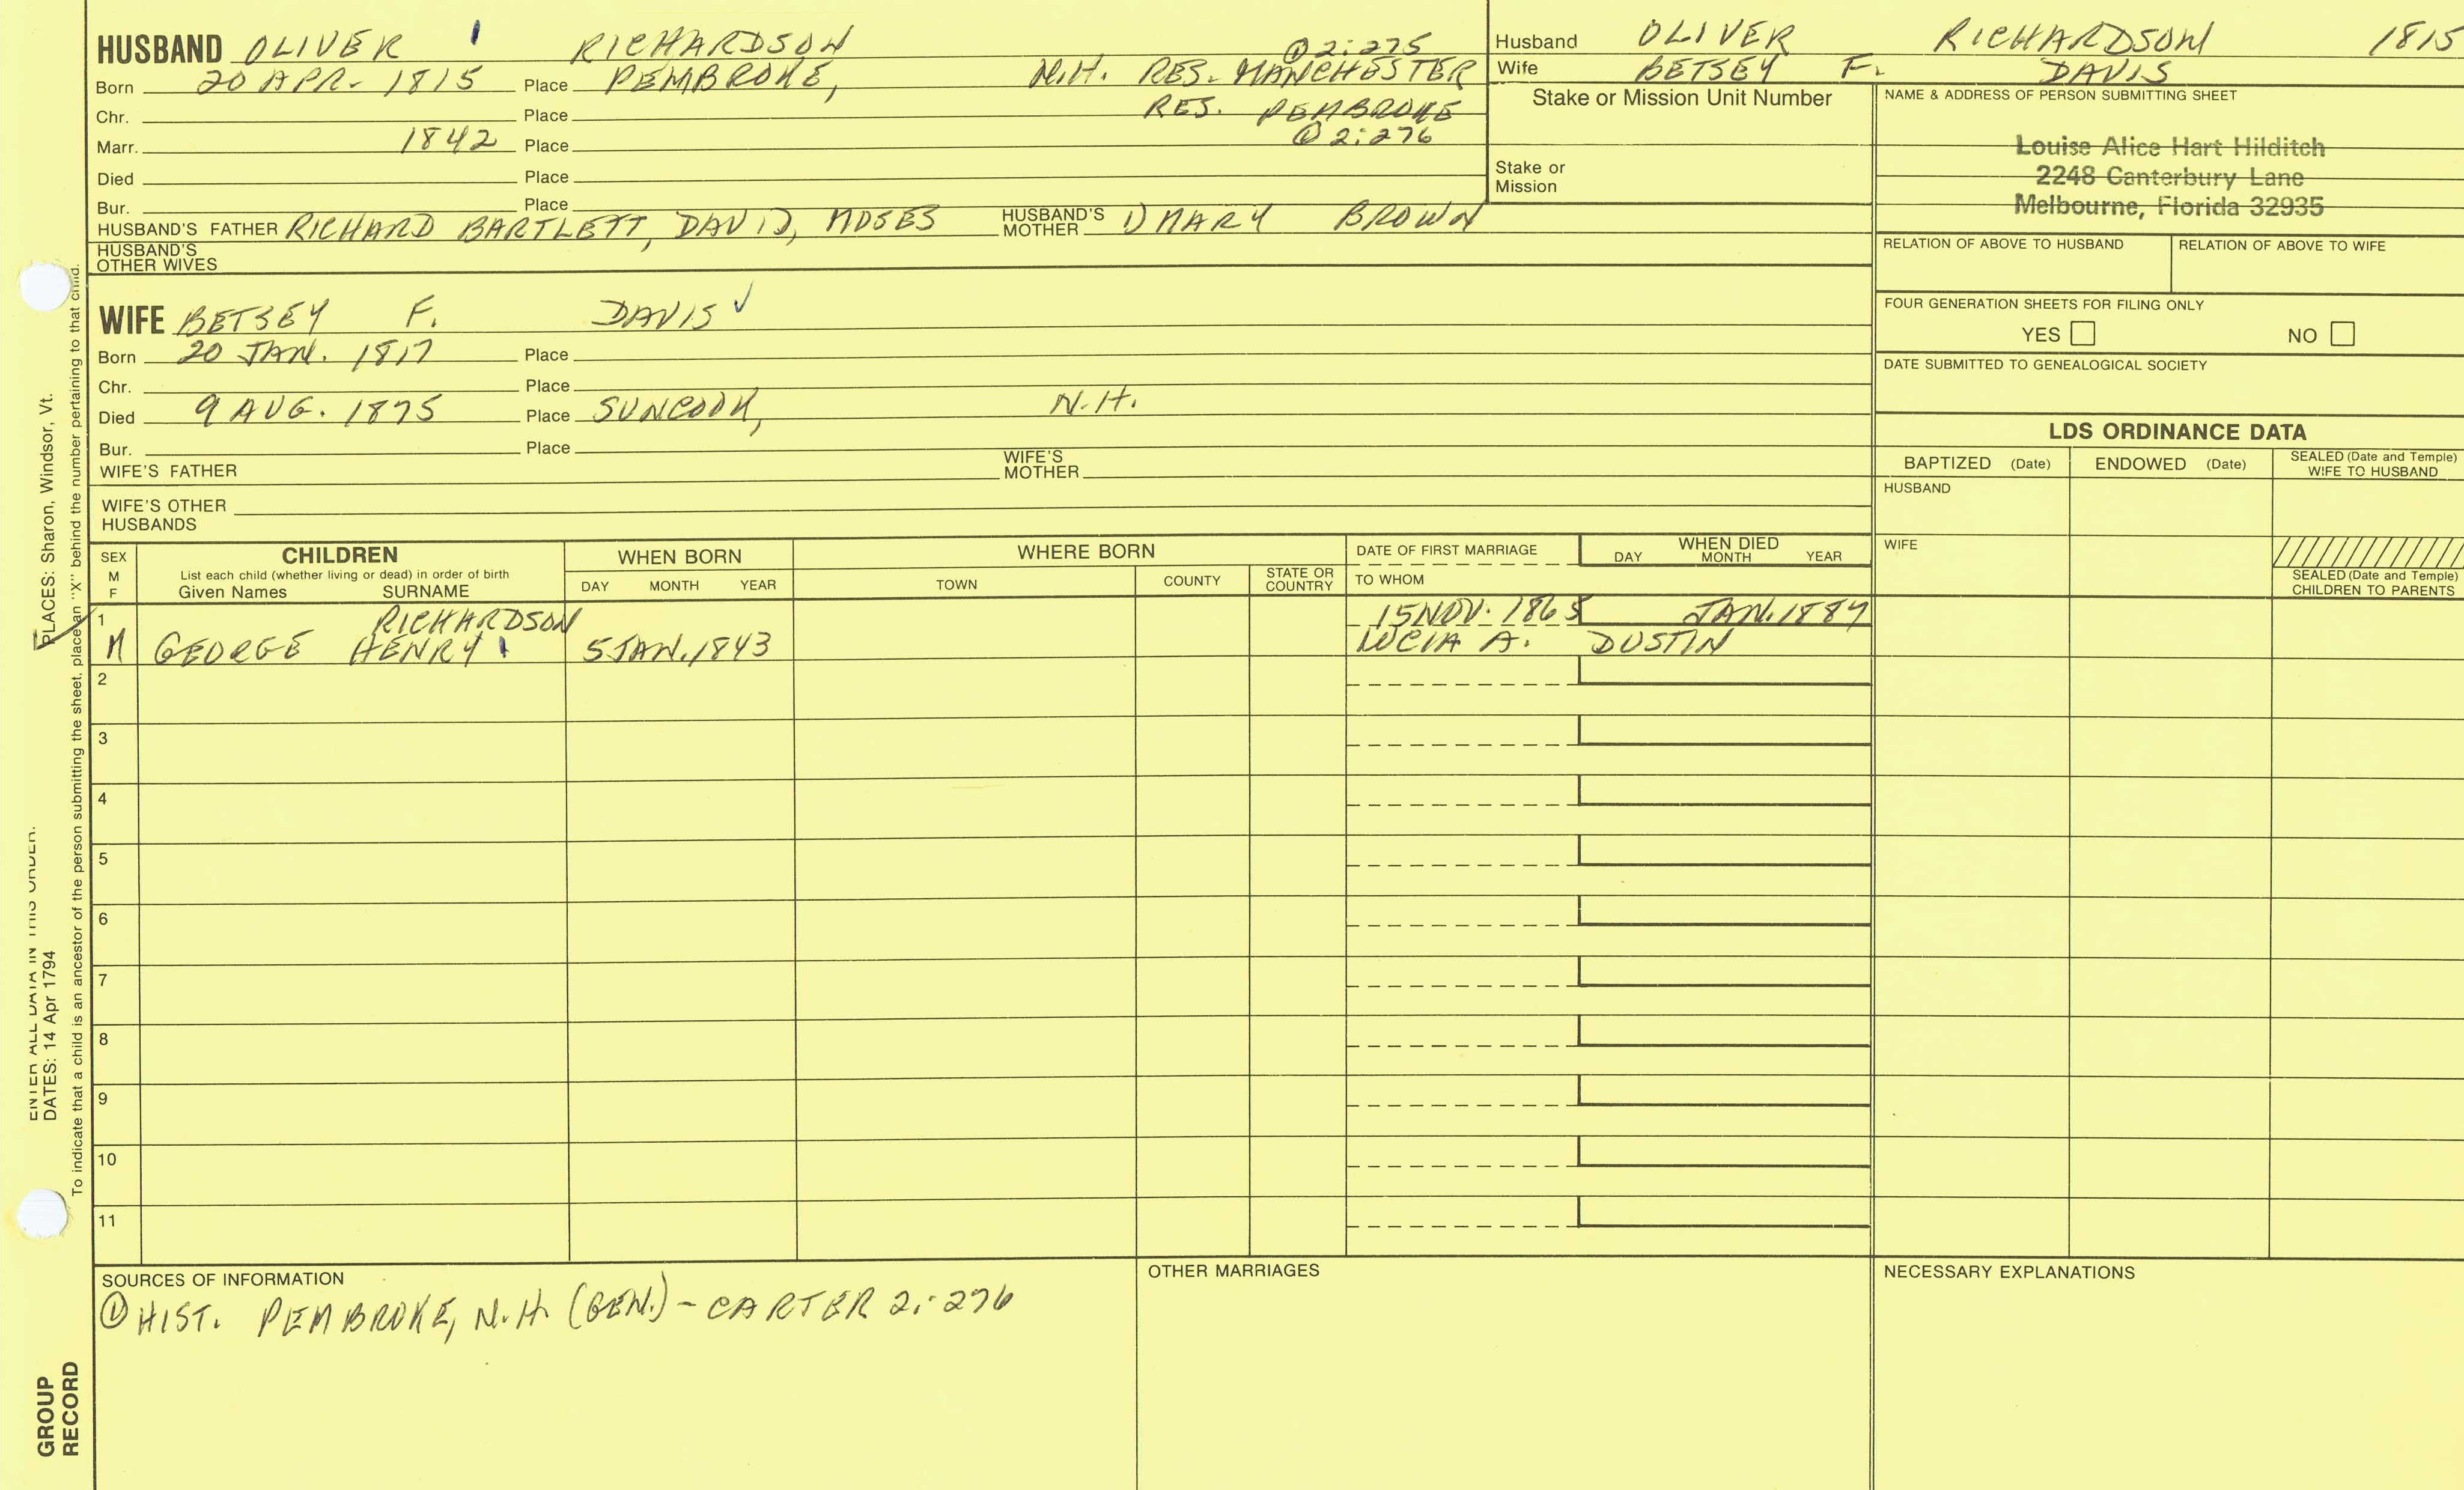 HUSBAND OLIVER RICHARDSON ① 2:275
Born 20 APR. 1815 Place PEMBROKE, N.H. RES. MANCHESTER
Chr. Place RES. PEMBROKE
Marr. 1842 Place ① 2:276
Died Place
Bur. Place
HUSBAND'S FATHER RICHARD BARTLETT, DAVID, MOSES HUSBAND'S MOTHER 1) MARY BROWN
HUSBAND'S OTHER WIVES
Husband OLIVER RICHARDSON 1815
Wife BETSEY F. DAVIS
Stake or Mission Unit Number
Stake or Mission
NAME & ADDRESS OF PERSON SUBMITTING SHEET
Louise Alice Hart Hilditch
2248 Canterbury Lane
Melbourne, Florida 32935
RELATION OF ABOVE TO HUSBAND RELATION OF ABOVE TO WIFE
FOUR GENERATION SHEETS FOR FILING ONLY
YES NO
DATE SUBMITTED TO GENEALOGICAL SOCIETY
WIFE BETSEY F. DAVIS ✓
Born 20 JAN. 1817 Place
Chr. Place
Died 9 AUG. 1875 Place SUNCOOK, N.H.
Bur. Place
WIFE'S FATHER WIFE'S MOTHER
WIFE'S OTHER HUSBANDS
LDS ORDINANCE DATA
BAPTIZED (Date) ENDOWED (Date) SEALED (Date and Temple) WIFE TO HUSBAND
HUSBAND
WIFE
SEALED (Date and Temple) CHILDREN TO PARENTS
SEX M F
CHILDREN
List each child (whether living or dead) in order of birth
Given Names SURNAME
WHEN BORN
DAY MONTH YEAR
WHERE BORN
TOWN COUNTY STATE OR COUNTRY
DATE OF FIRST MARRIAGE
TO WHOM
WHEN DIED
DAY MONTH YEAR
1 RICHARDSON 15 NOV. 1865 JAN. 1887
M GEORGE HENRY 5 JAN. 1843 LUCIA A. DUSTIN
2
3
4
5
6
7
8
9
10
11
SOURCES OF INFORMATION
① HIST. PEMBROKE, N.H. (GEN.) - CARTER 2:276
OTHER MARRIAGES
NECESSARY EXPLANATIONS
PLACES: Sharon, Windsor, Vt.
ENTER ALL DATA IN THIS ORDER:
DATES: 14 Apr 1794
To indicate that a child is an ancestor of the person submitting the sheet, place an "X" behind the number pertaining to that child.
GROUP
RECORD